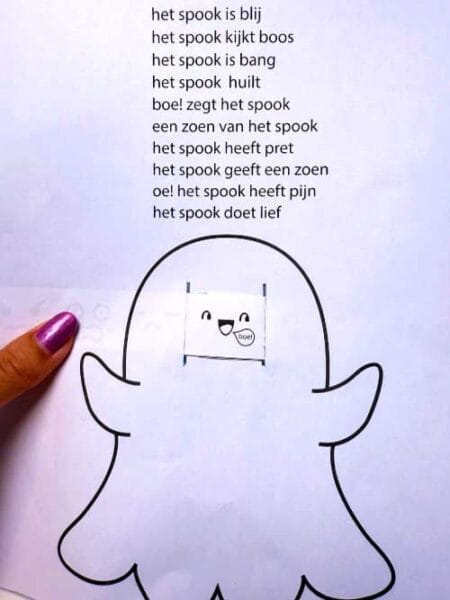 het spook is blij
het spook kijkt boos
het spook is bang
het spook  huilt
boe! zegt het spook
een zoen van het spook
het spook heeft pret
het spook geeft een zoen
oe! het spook heeft pijn
het spook doet lief
boe!